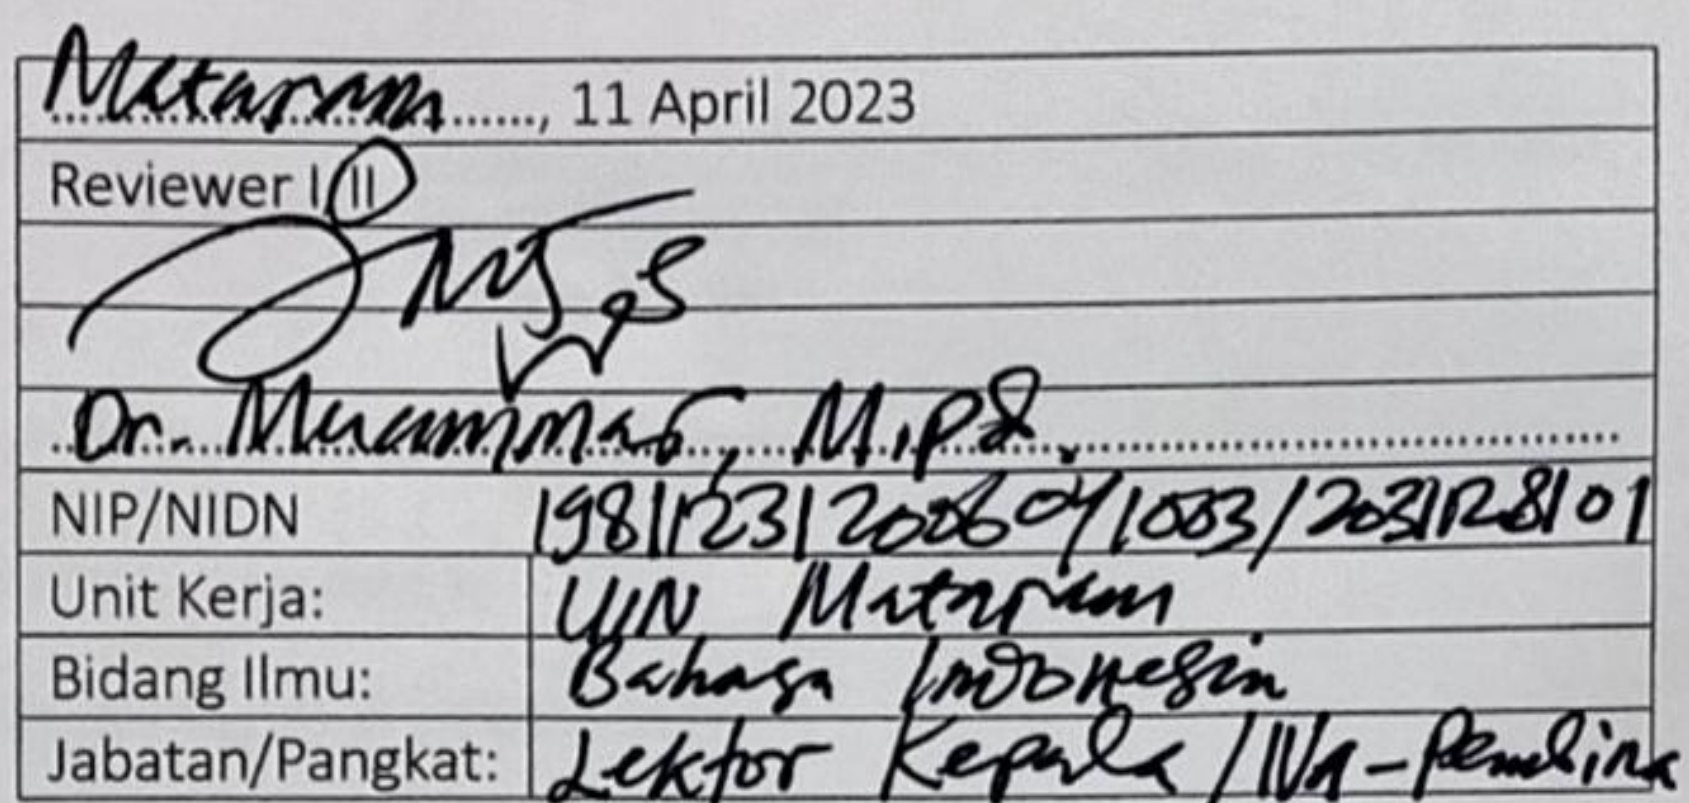 Mataram, 11 April 2023
Reviewer I/II
Dr. Muammar, M.Pd.
NIP/NIDN 198112312006041003/2031128101
Unit Kerja: UIN Mataram
Bidang Ilmu: Bahasa Indonesia
Jabatan/Pangkat: Lektor Kepala/IVa-Pembina